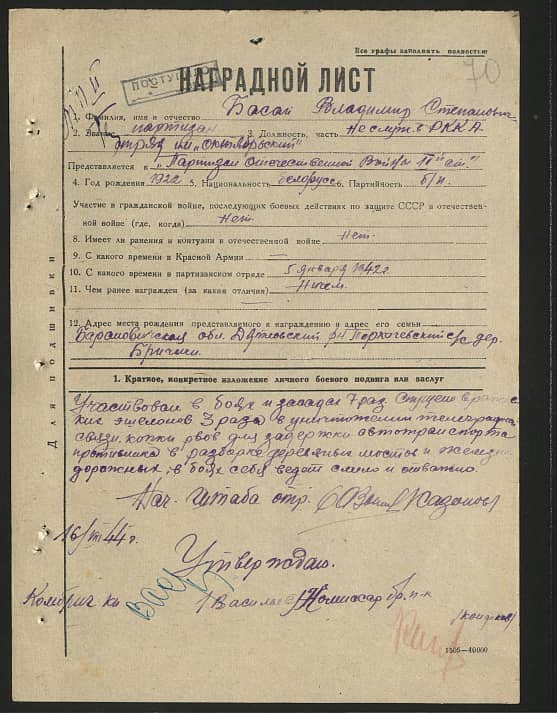 Все графы заполнять полностью
70
ПОСТУПИЛО
НАГРАДНОЙ ЛИСТ
1. Фамилия, имя и отчество Басай Владимир Степанович
2. Звание партизан 3. Должность, часть не служ. в РККА
отряд им. „Октябрьский"
Представляется к „Партизан Отечественной Войны II ст."
4. Год рождения 1922 5. Национальность белорус 6. Партийность б/п.
Участие в гражданской войне, последующих боевых действиях по защите СССР в отечествен-
ной войне (где, когда) Нет
8. Имеет ли ранения и контузии в отечественной войне Нет.
9. С какого времени в Красной Армии
10. С какого времени в партизанском отряде 5 января 1942 г
11. Чем ранее награжден (за какие отличия) Ничем.
12. Адрес места рождения представляемого к награждению и адрес его семьи
Барановичская обл. р-н с/с дер.
Для подшивки
1. Краткое, конкретное изложение личного боевого подвига или заслуг
Участвовал в боях и засадах 7 раз спуске вражес
ких эшелонов 3 раза в уничтожении телеграфной
связи, копки рвов для задержки автотранспорта
противника в разборке деревяных мостов и железно
дорожных, в боях себя ведет смело и отважно.
Нач. Штаба отр.
16/VII 44 г.
Утверждаю.
Комбриг /Васильев/ Комиссар бр.
1506—40000